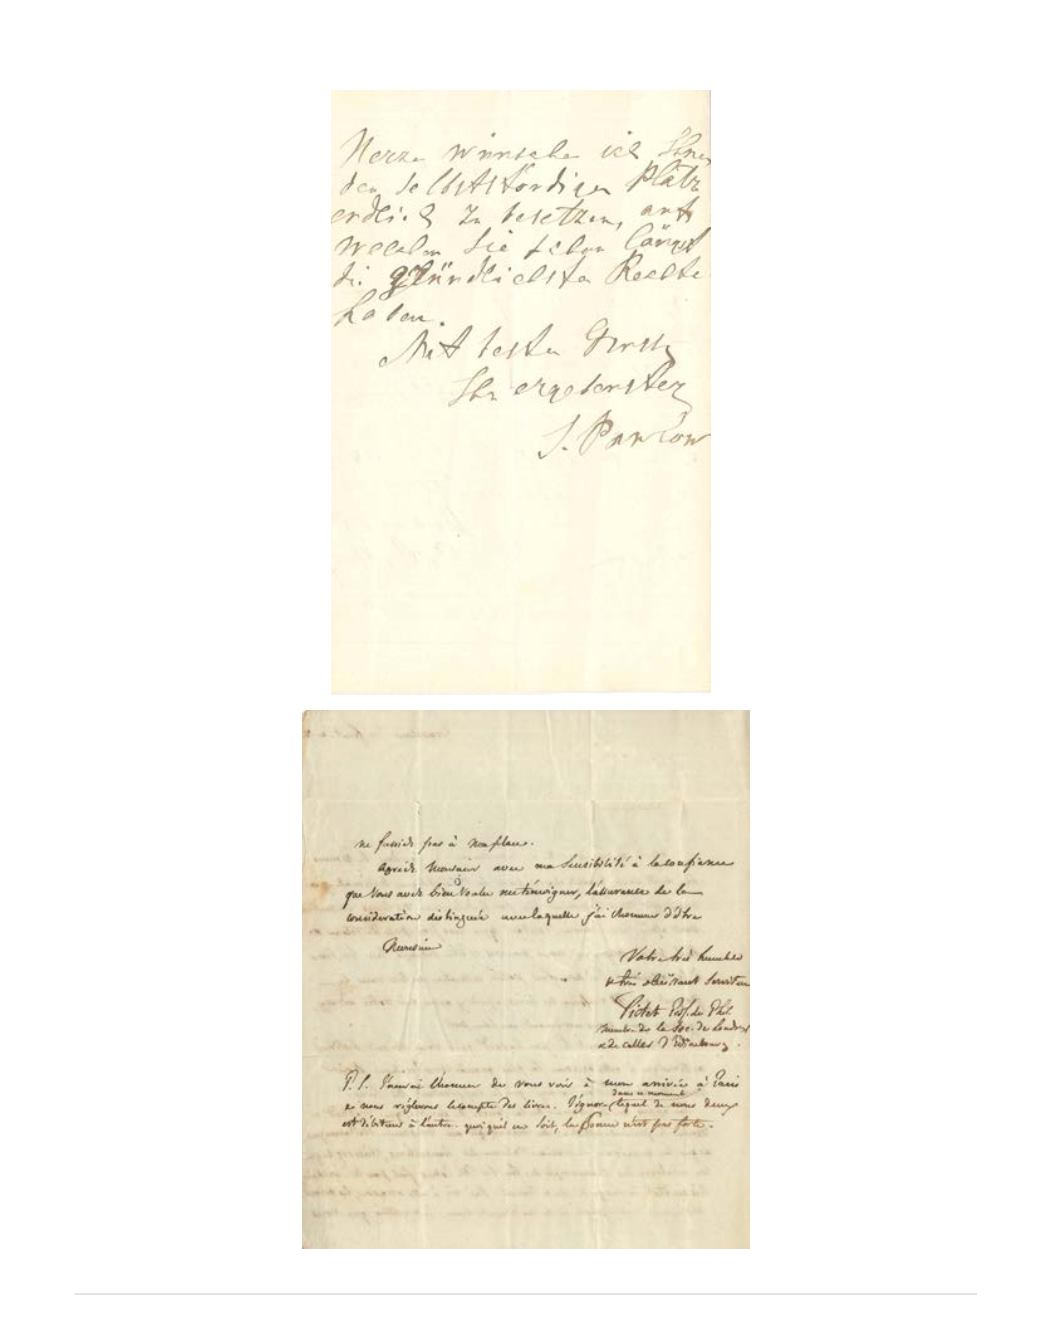 Herzen wünsche ich Ihnen
den selbstständigen Platz
endlich zu besetzen, auf
welchen Sie schon längst
die gründlichsten Rechte
haben.
Mit besten Gruß
Ihr ergebenster
I. Pawlow
ne fussiez pas à ma place.
Agréez Monsieur avec ma sensibilité à la confiance
que vous avez bien voulu me témoigner, l'assurance de la
considération distinguée avec laquelle j'ai l'honneur d'être
Monsieur
Votre très humble
& très obéissant serviteur
Pictet Prof. de Phil.
membre de la Soc. de Londres
& de celles d'Edinbourg.
P.S. J'aurai l'honneur de vous voir à mon arrivée à Paris
dans ce moment
& nous réglerons le compte des livres. J'ignore lequel de nous deux
est débiteur à l'autre. quoiqu'il en soit, la somme n'est pas forte.